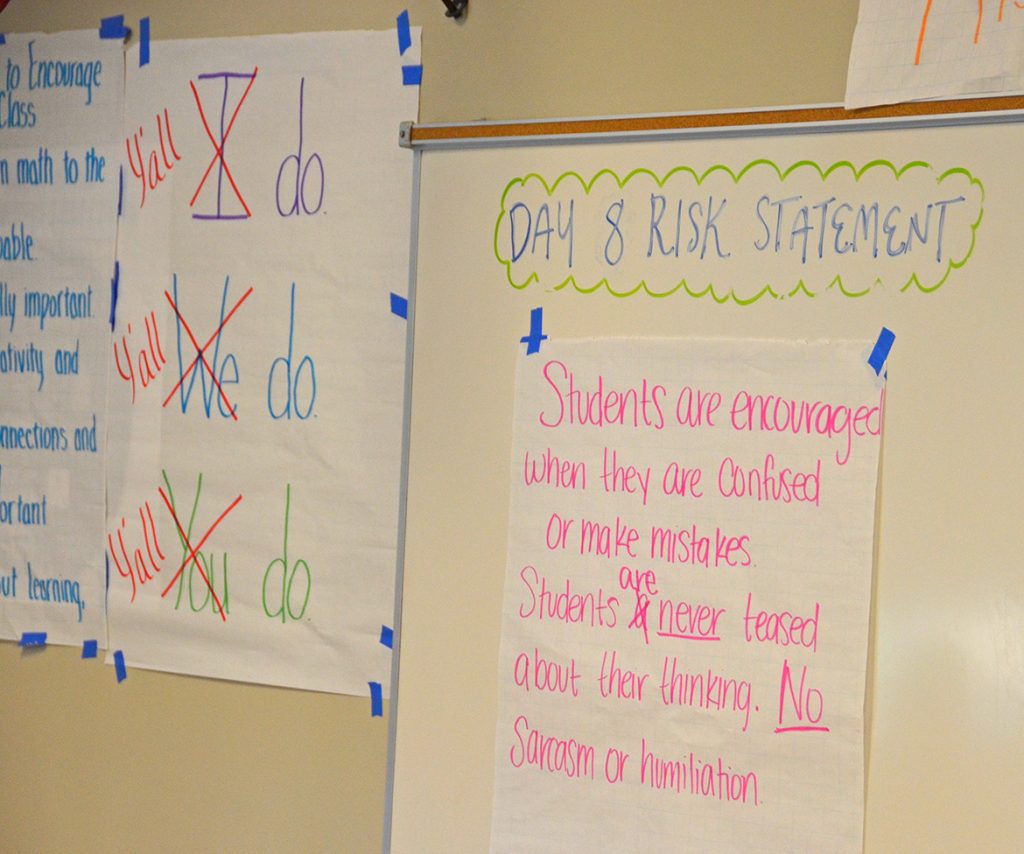 to Encourage
Class
math to the
important
and
and
learning,
Y'all I do.
Y'all We do.
Y'all You do.
DAY 8 RISK STATEMENT
Students are encouraged
when they are confused
or make mistakes.
are
Students never teased
about their thinking. No
Sarcasm or humiliation.